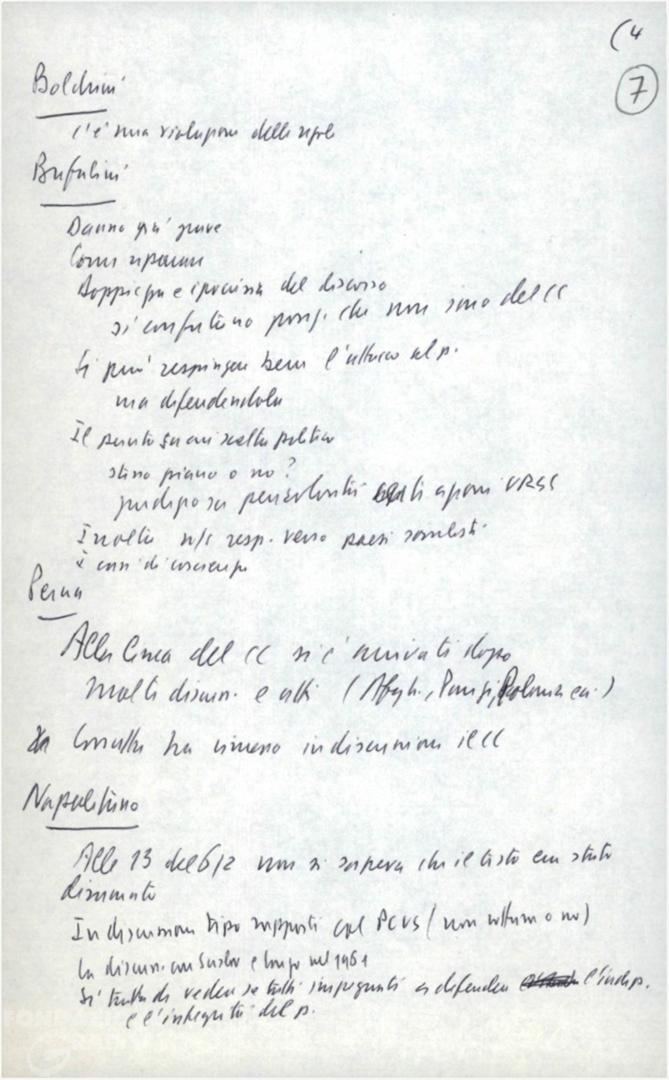 (4
7
Boldrini
c'è una violazione delle regole
Bufalini
Danno più grave
Come riparare
Doppiezza e ipocrisia del discorso
si confutano posiz. che non sono del CC
Si può respingere bene l'attacco al p.
ma difendendola
Il punto su cui scelta politica
siamo piano o no?
giudizio su pericolosità azioni URSS
Inoltre n/s resp. verso paesi socialisti
è casi di coscienza
Perna
Alla linea del CC si è arrivati dopo
molti discuss. e atti (Afgh., Parigi, Polonia ecc.)
Cossutta ha rimesso in discussione il CC
Napolitano
Alle 13 del 6/2 non si sapeva che il testo era stato
diramato
In discussione tipo rapporti col PCUS (non rottura o no)
La discuss. con Suslov e Longo nel 1961
Si tratta di vedere se tutti impegnati a difendere l'indip.
e l'integrità del p.